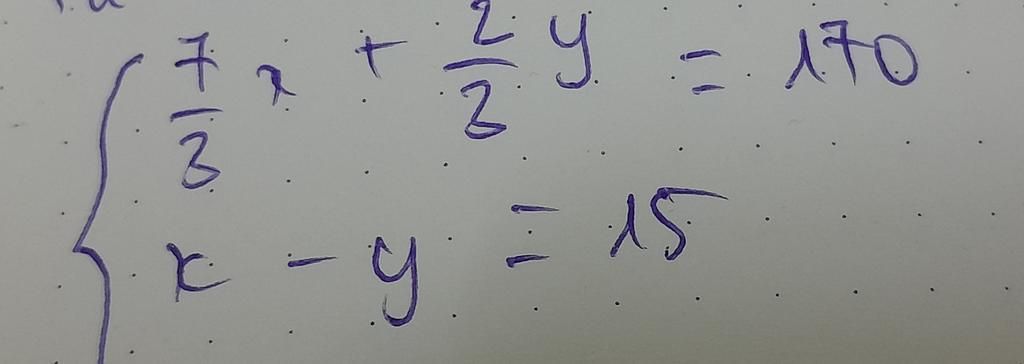 7/3 x + 2/3 y = 170
x - y = 15